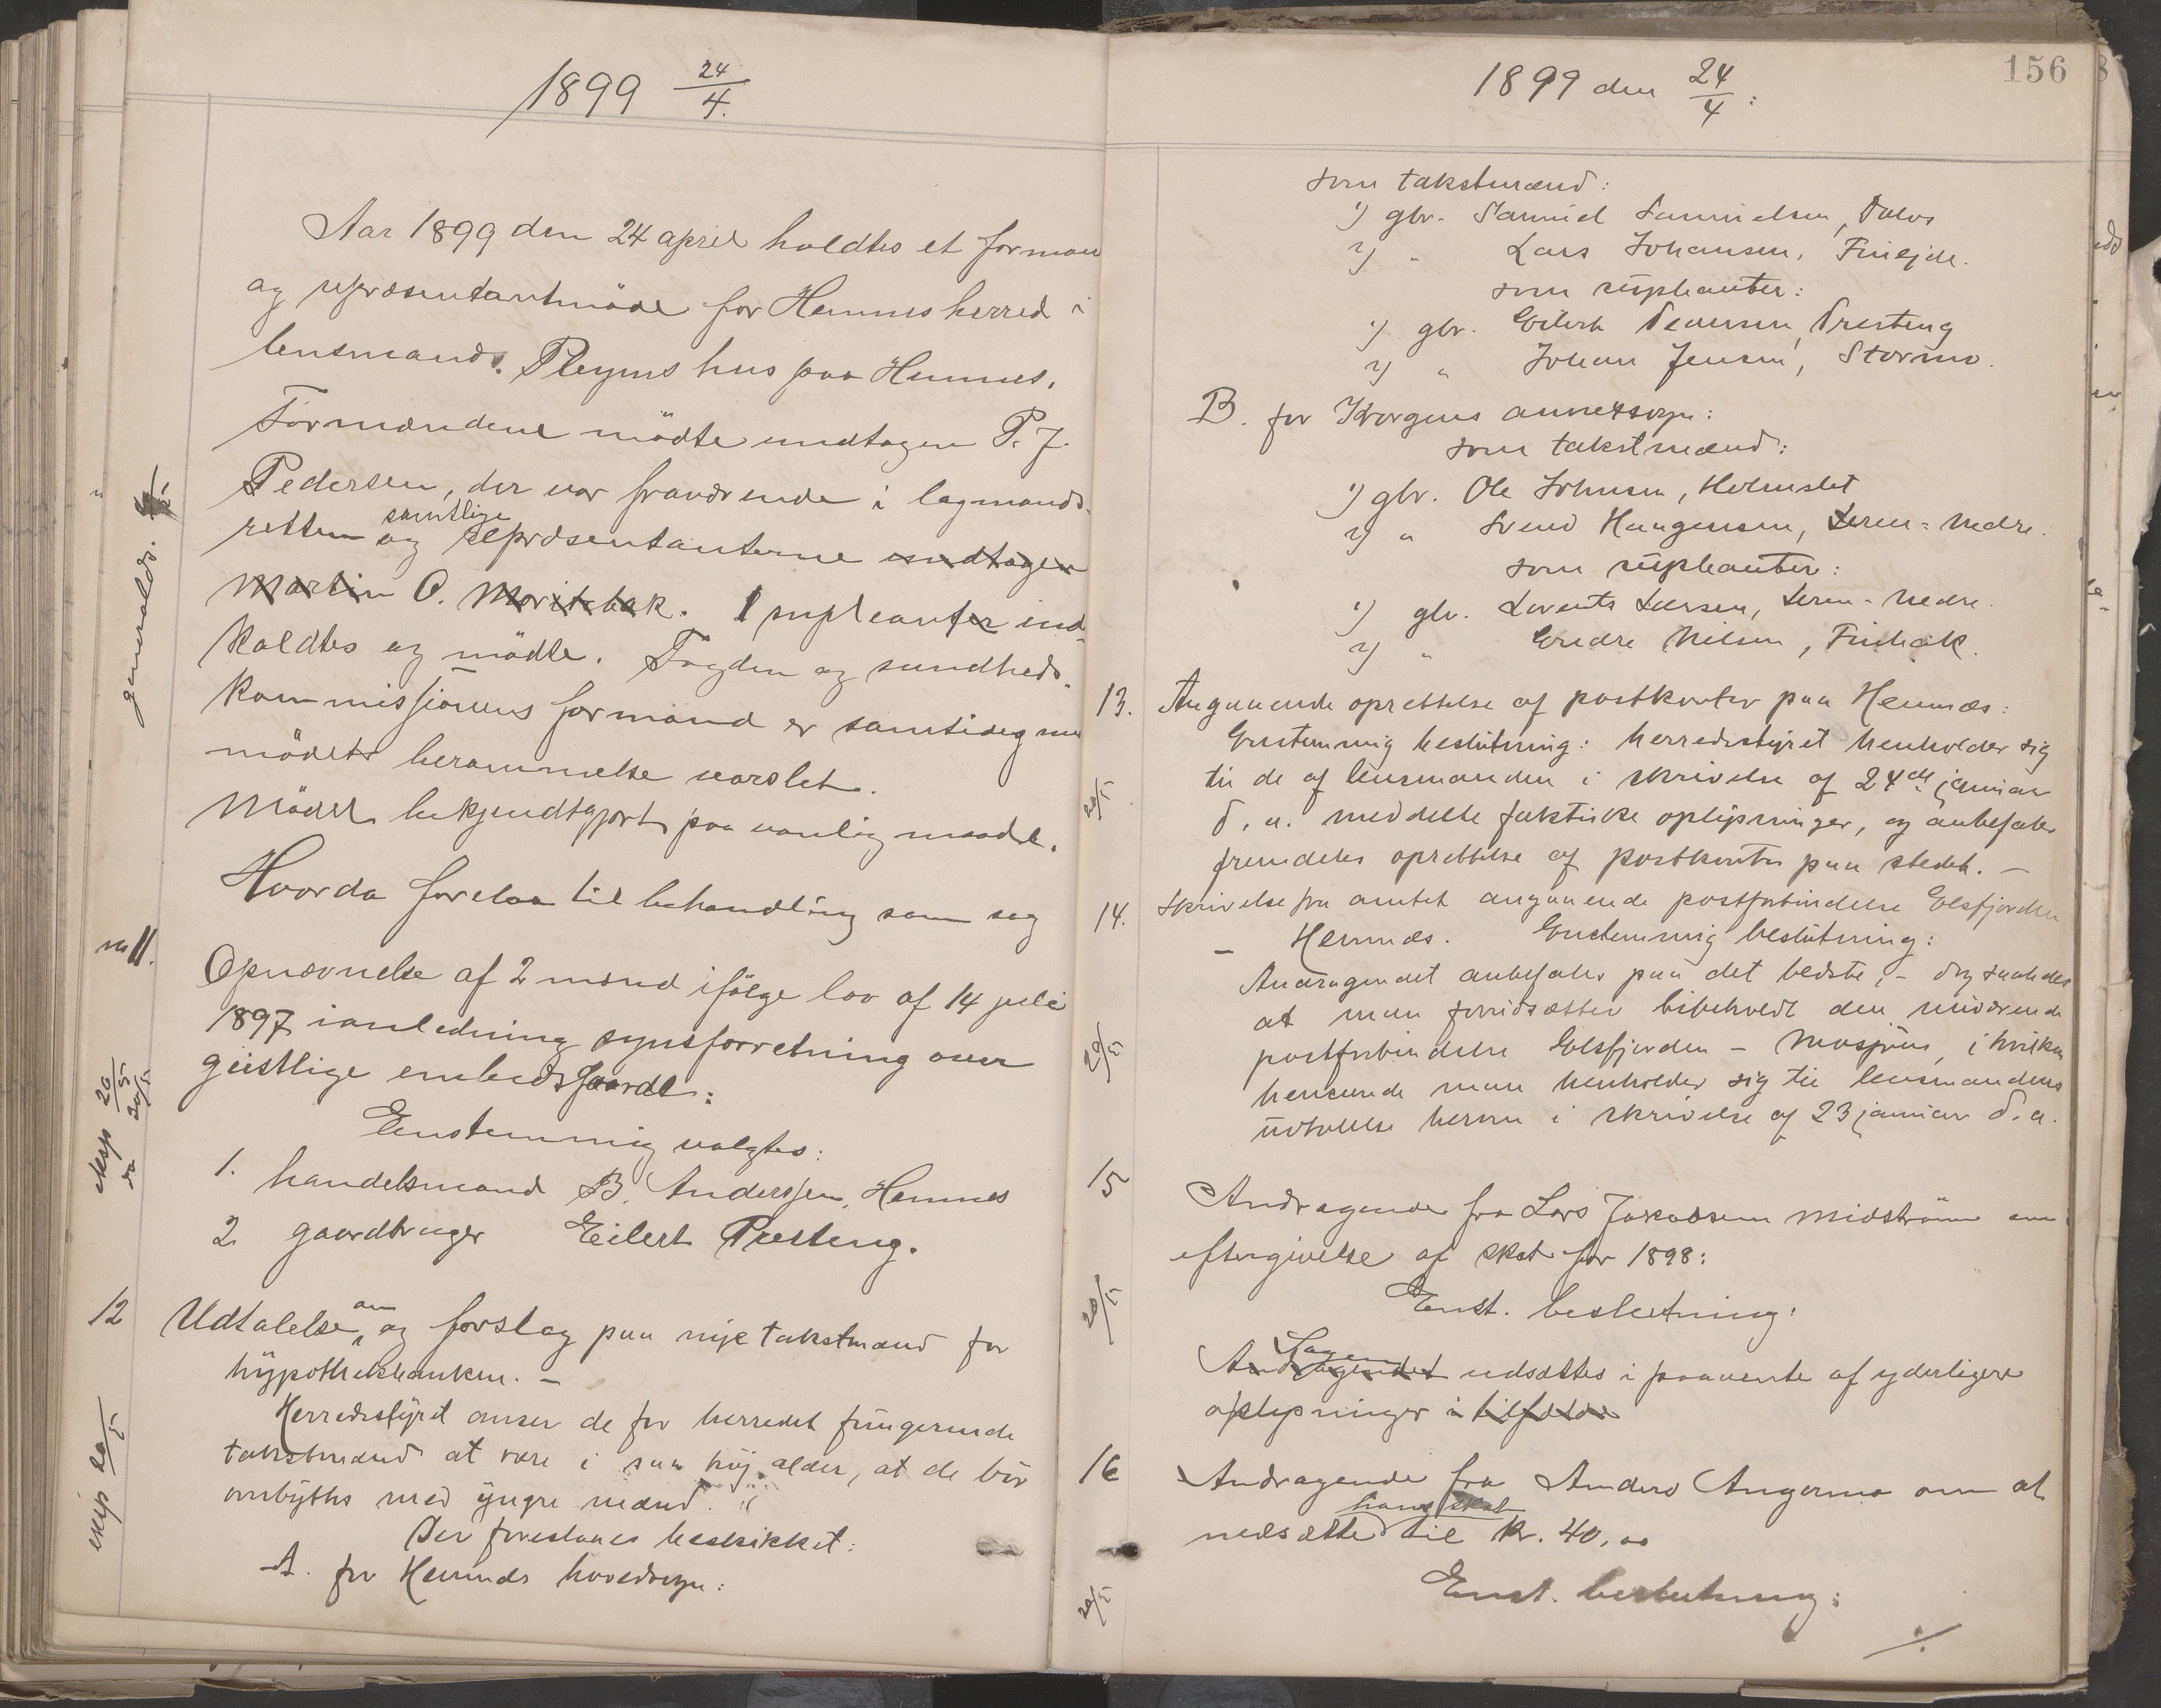 1899 24/4.
Aar 1899 den 24 april holdtes et forman
og repræsentantmöde for Hemnes herred i
lensmand. Pleyms hus paa Hemnes.
Formændene mödte undtagen P. J.
Pedersen, der var fraværende i lagmands-
retten og samtlige repræsentanterne undtagen
Martin O. Moritsbak. 1 supleanter ind-
kaldtes og mödte. Fogden og sundheds-
kommissionens formand er samtidig med
mödets berammelse varslet.
Mödet bekjendtgjort paa vanlig maade.
generaldr.
Hvorda forelaa til behandling som sag
no 11.
Opnævnelse af 2 mænd ifölge lov af 14 juli
1897 i anledning synsforretning over
geistlige embedsgaarde:
eksp 20/5
do 30/5
Eenstemmig valgtes:
1. handelsmand B. Anderssen, Hemnes
2 gaardbruger Eilert Presteng.
12 Udtalelse om og forslag paa nye takstmænd for
hypothekbanken. —
Herredsstyret anser de for herredet fungerende
takstmænd at være i saa höj alder, at de bör
ombyttes med yngre mænd.
eksp 20/5
Der foreslaaes beskikket:
A. for Hemnæs hovedsogn:
1899 den 24/4:
156
som takstmænd:
1) gbr. Samuel Samuelsen, Dalos
2) " Lars Johansen, Finejde.
som supleanter:
1) gbr. Eilert Pedersen, Presteng
2) " Johan Jensen, Stormo.
B. for Korgens annexsogn:
som takstmænd:
1) gbr. Ole Johnsen, Holmslet
2) " Svend Haagensen, Leren-Nedre.
som supleanter:
1) gbr. Lorents Larsen, Leren-Nedre.
2) " Endre Nilsen, Finbak.
13. Angaaende oprettelse af postkontor paa Hemnæs:
Enstemmig beslutning: herredsstyret henholder sig
til de af lensmanden i skrivelse af 24de januar
d. a. meddelte faktiske oplysninger, og anbefaler
20/5
fremdeles oprettelse af postkontor paa stedet. —
14. Skrivelse fra amtet angaaende postforbindelse Elsfjorden
— Hemnæs. Enstemmig beslutning:
Andragendet anbefales paa det bedste, – dog saaledes
at man forudsætter bibeholdt den nuværende
20/5
postforbindelse Elsfjorden – Mosjöen, i hvilken
henseende man henholder sig til lensmandens
udtalelse herom i skrivelse af 23 januar d. a.
15 Andragende fra Lars Jakobsen Midström om
eftergivelse af skat for 1898:
20/5
Enst. beslutning:
Andragendet Sagen udsættes i paavente af yderligere
oplysninger i tilfælde
16 Andragende fra Anders Angermo om at
nedsætte hans skat til kr. 40,00
20/5
Enst. beslutning:
./.